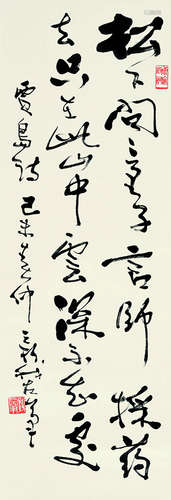 松下问童子言師採药
去只在此山中雲深不知處
賈島詩 己未春仲